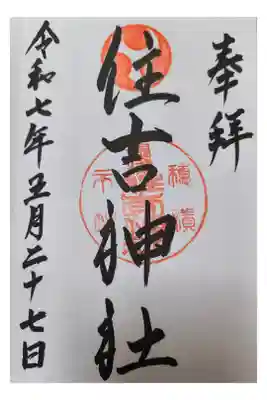 奉拝
住吉神社
令和七年五月二十七日